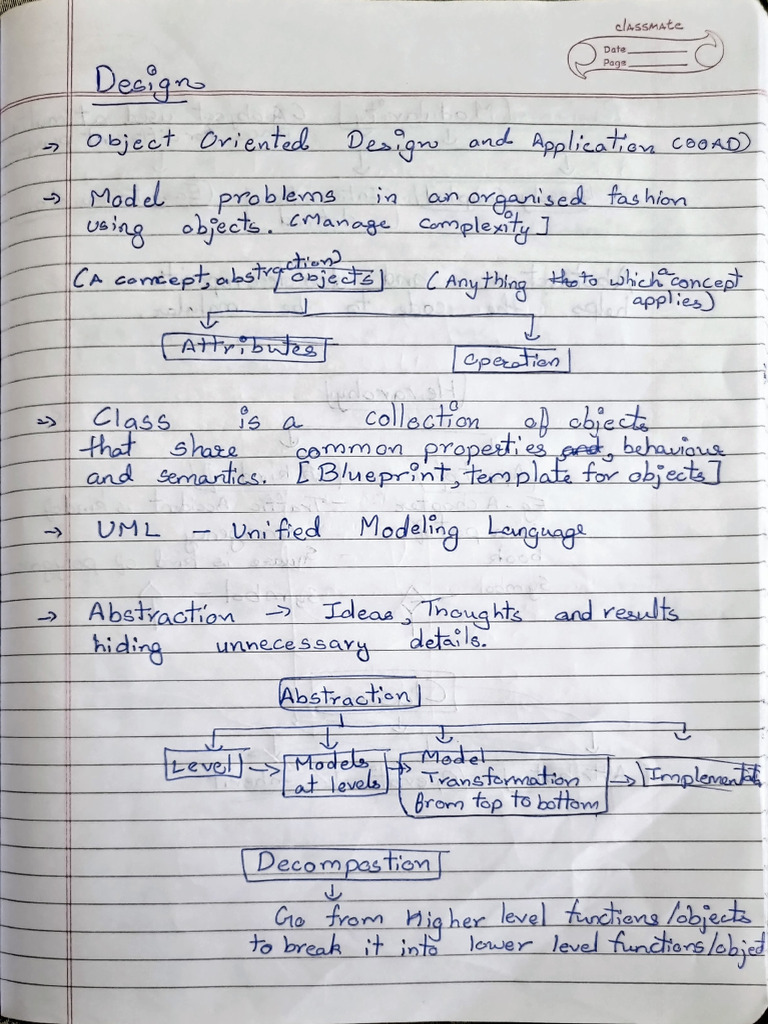 classmate
Date
Page
Design
→ Object Oriented Design and Application (OOAD)
→ Model problems in an organised fashion
using objects. (Manage complexity]
(A concept, abstraction) objects (Anything to which a concept
applies)
Attributes
Operation
→ Class is a collection of objects
that share common properties and, behaviour
and semantics. [Blueprint, template for objects]
→ UML - Unified Modeling Language
→ Abstraction → Ideas, Thoughts and results
hiding unnecessary details.
Abstraction
Level → Models at levels → Model Transformation from top to bottom → Implementati
Decompostion
↓
Go from Higher level functions/objects
to break it into lower level functions/object